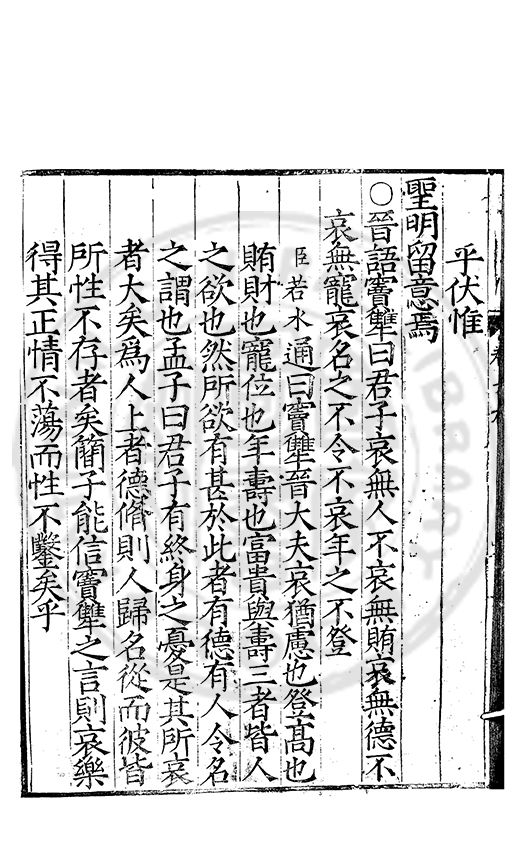 乎伏惟
聖明留意焉
○晉語竇犨曰君子哀無人不哀無賄哀無德不
哀無寵哀名之不令不哀年之不登
臣若水通曰竇犨晉大夫哀猶慮也登高也
賄財也寵位也年壽也富貴與壽三者皆人
之欲也然所欲有甚於此者有德有人令名
之謂也孟子曰君子有終身之憂是其所哀
者大矣爲人上者德脩則人歸名從而彼皆
所性不存者矣簡子能信竇犨之言則哀樂
得其正情不蕩而性不鑿矣乎